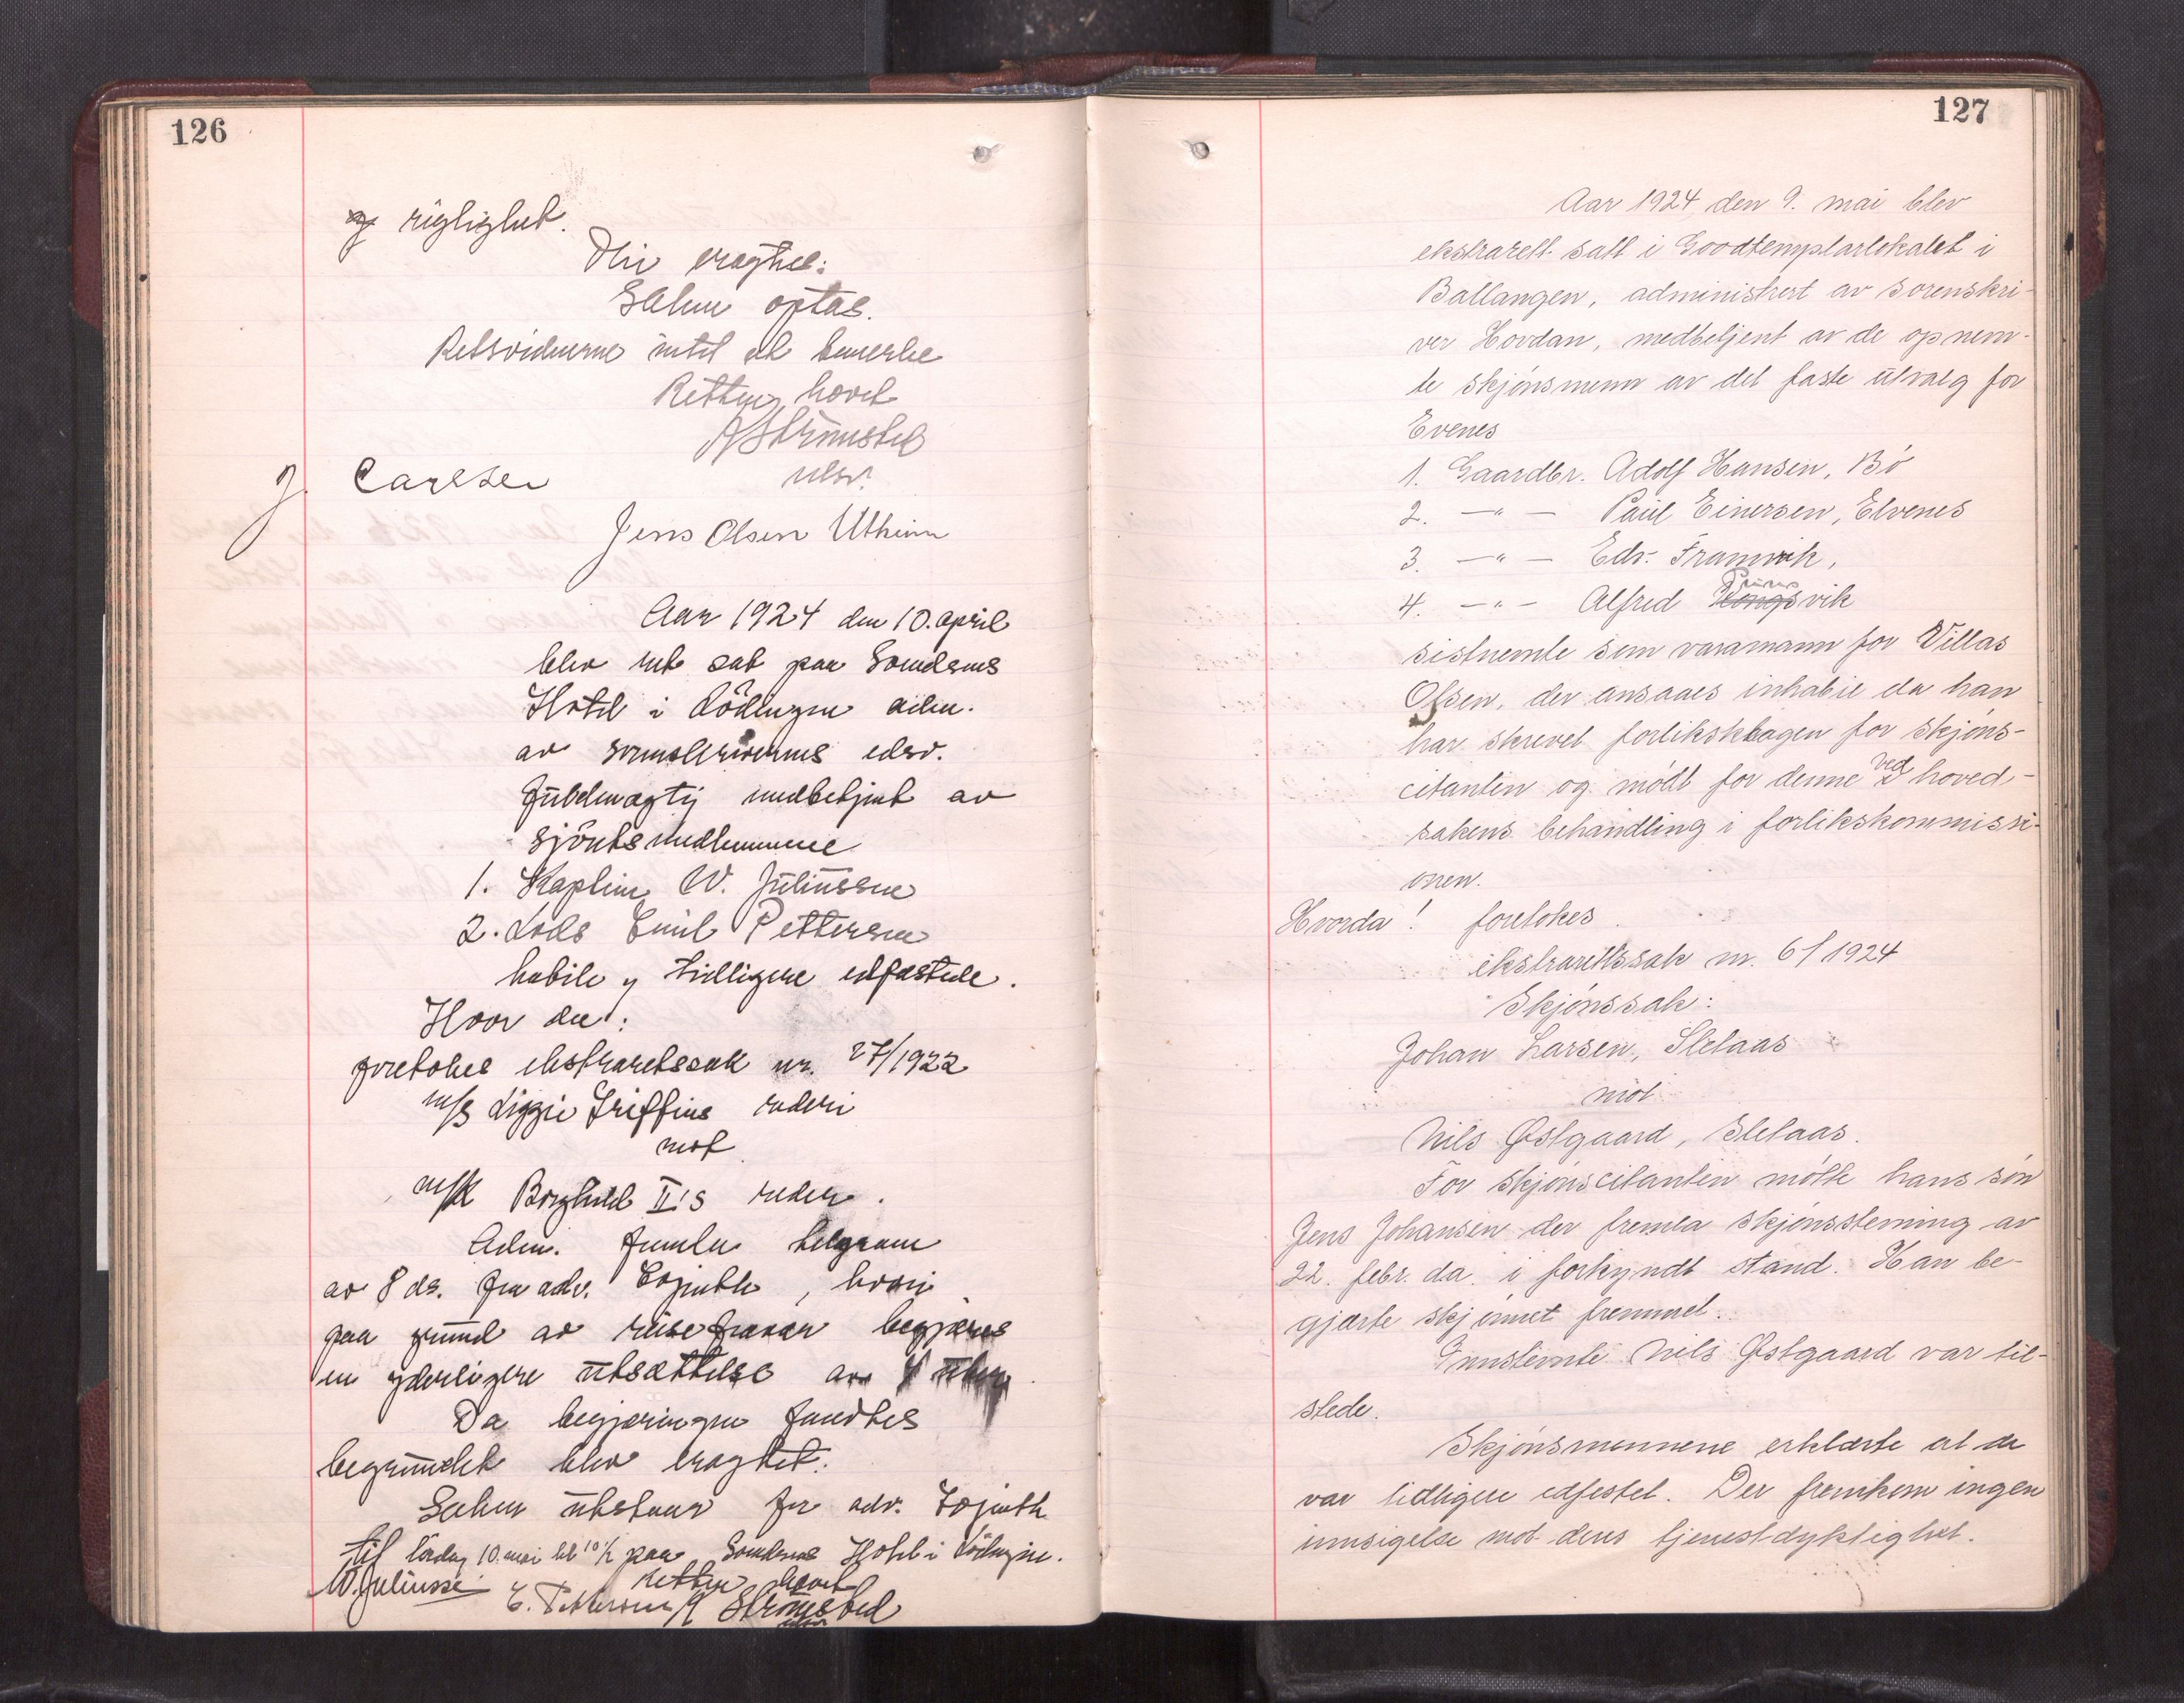 126
og rigtighet.
Blev eragtet:
Saken optas.
Retsvidnerne intet at bemerke
Retten hævet
A Strømsted
edsv.
J. Carlsen
Jens Olsen Utheim
Aar 1924 den 10. april
blev ret sat paa
Hotel i Lödingen adm.
av sorenskriverens edsv.
fuldmægtig medbetjent av
sjöretsmedlemmene
1. Kaptein W. Juliussen
2. Lods Emil Pettersen
habile og tidligere edfæstede.
Hvor da:
foretokes ekstraretssak nr. 27/1922
m/s Lizzie Griffins rederi
mot
m/k Borghild II's reder.
Adm. fremla telegram
av 8 ds. fra adv. , hvori
paa grund av reisefravær begjæres
en yderligere utsættelse av 4 uker
Da begjæringen fandtes
begrundet blev eragtet:
Saken utstaar for adv.
til lördag 10. mai kl 10 ½ paa Hotel i Lödingen.
Retten hævet
W. Juliussen E. Pettersen A Strømsted
edsv
127
Aar 1924 den 9. mai blev
ekstrarett satt i Goodtemplarlokalet i
Ballangen, administrert av sorenskri-
ver Hovdan, medbetjent av de opnem-
te skjönsmenn av det faste utvalg for
Evenes
1. Gaardbr. Adolf Hansen, Bö
2. —"— Paul Einersen, Elvenes
3. —"— Edv. Framvik,
4. —"— Alfred vik
sistnemte som varamann for Villas
Olsen, der ansaaes inhabil da han
har skrevet forliksklagen for skjöns-
citanten og mödt for denne ved hoved-
sakens behandling i forlikskommissi-
onen.
Hvorda! foretokes
ekstrarettssak nr. 6/1924
Skjönssak:
Johan Larsen, Sletaas
mot
Nils Østgaard, Sletaas.
For skjönscitanten mötte hans sön
Jens Johansen der fremla skjönsstevning av
22. febr. da. i forkyndt stand. Han be-
gjærte skjönnet fremmet.
Innstevnte Nils Østgaard var til-
stede.
Skjönsmennene erklærte at de
var tidligere edfestet. Der fremkom ingen
innsigelse mot deres tjenestdyktighet.